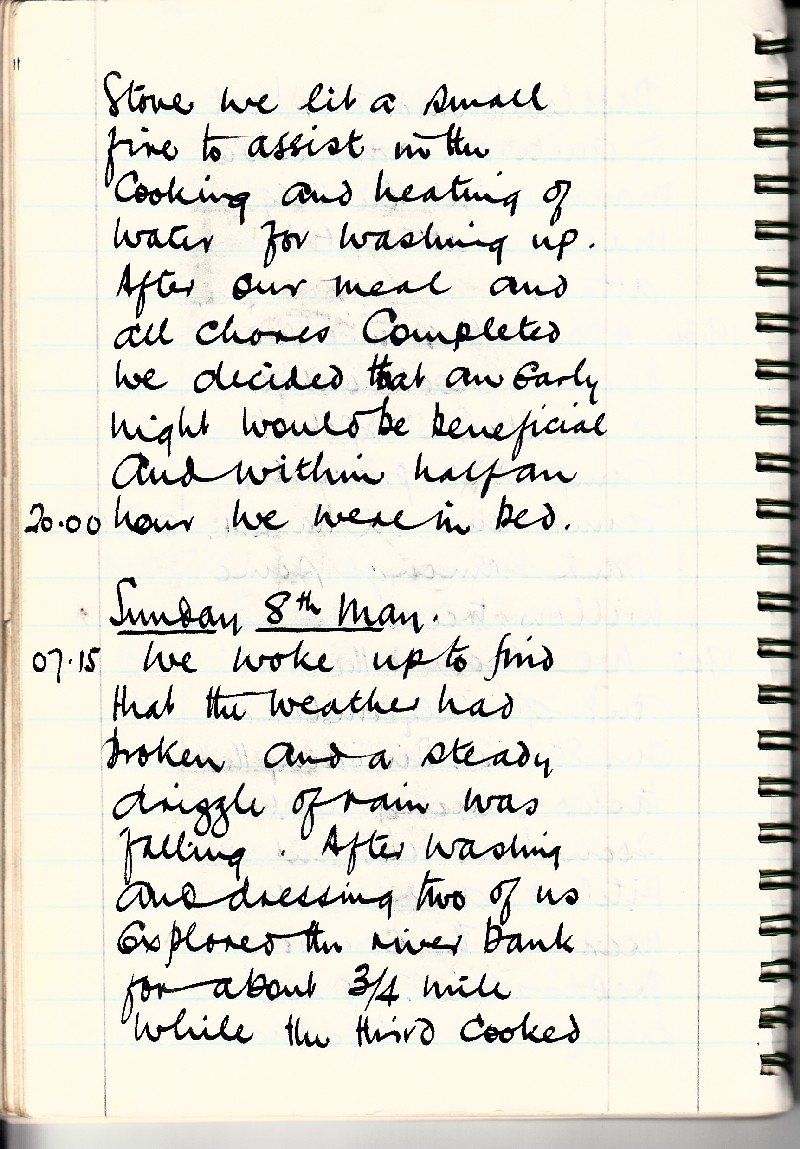 Stove we lit a small
fire to assist in the
Cooking and heating of
water for washing up.
After our meal and
all chores Completed
we decided that an Early
night would be beneficial
And within half an
20.00 hour we were in bed.
Sunday 8th May.
07.15 We woke up to find
that the weather had
broken and a steady
drizzle of rain was
falling. After washing
and dressing two of us
Explored the river bank
for about 3/4 mile
while the third cooked